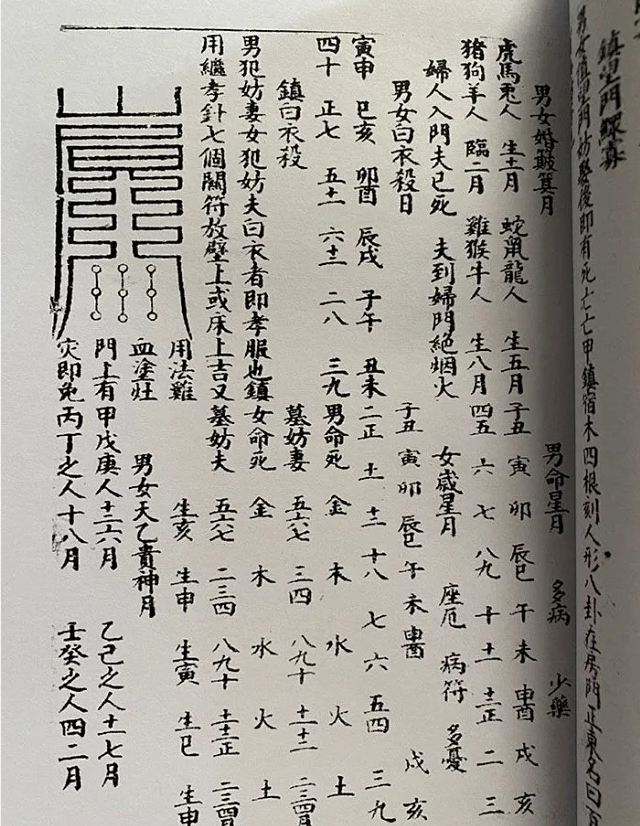 鎮望門鰥寡
男女值望門妨娶後即有死亡亡甲鎮宿木四根刻人形八卦在房門正東名曰
男女婚鼓簸箕月
男命皇月 多病 少藥
虎馬兎人 生十二月 蛇鼠龍人 生五月
子丑 寅 卯 辰巳 午 未 申酉 戌 亥
猪狗羊人 臨二月 雞猴牛人 生八月
四五 六 七 八九 十 十二 十二正 二 三
婦人入門夫已死 夫到婦門絕烟火
女嵗星月 座厄 病符 多憂
男女白衣殺日
子丑 寅 卯 辰巳 午 未 申酉 戌 亥
寅申 巳亥 卯酉 辰戌 子午 丑未
二正 十二 十三 十八 七 六 五四 三九
四十 正七 五十一 六十二 二八 三九
男命死 金 木 水 火 土
鎮白衣殺
墓妨妻 五六七 三四 八九十 十十二 二三四月
男犯妨妻女犯妨夫白衣者即孝服也鎮
女命死 金 木 水 火 土
用繼孝針七個關符放壁上或床上吉又
墓妨夫 五六七 二三四 八九十 十十二正 二三四月
用法雞
生亥 生申 生寅 生巳 生申
血塗灶
男女天乙貴神月
門上有
甲戊庚人十二六月 乙己之人十一七月
灾即免
丙丁之人十八月 壬癸之人四二月